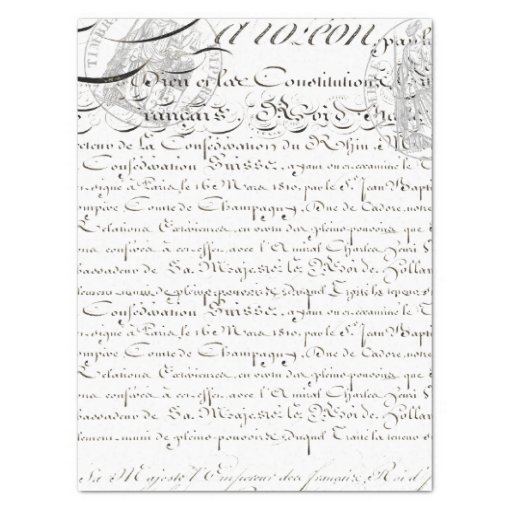 TIMBRE
apoléon, par l
Dieu et les Constitutions
français, Roi d'Ital
ecteur de la Confédération du Rhin, M
Confédération Suisse, ayant vu et examiné le
signé à Paris, le 16 Mars 1810, par le Sr. Jean Bapt
ompère Comte de Champagny, Duc de Cadore, notre
Relations Extérieures, en vertu des pleins pouvoirs
ons conférés à cet effet, avec l'Amiral Charles Henri V
bassadeur de Sa Majesté le Roi de Hollan
lement muni de pleins pouvoirs, duquel Traité la teneur
Confédération Suisse, ayant vu et examiné le T
signé à Paris, le 16 Mars 1810, par le Sr. Jean Bapt
ompère Comte de Champagny, Duc de Cadore, notre
Relations Extérieures, en vertu des pleins pouvoirs
ons conférés à cet effet, avec l'Amiral Charles Henri V
bassadeur de Sa Majesté le Roi de Hollan
lement muni de pleins pouvoirs, duquel Traité la teneur s
Sa Majesté l'Empereur des français, Roi d'